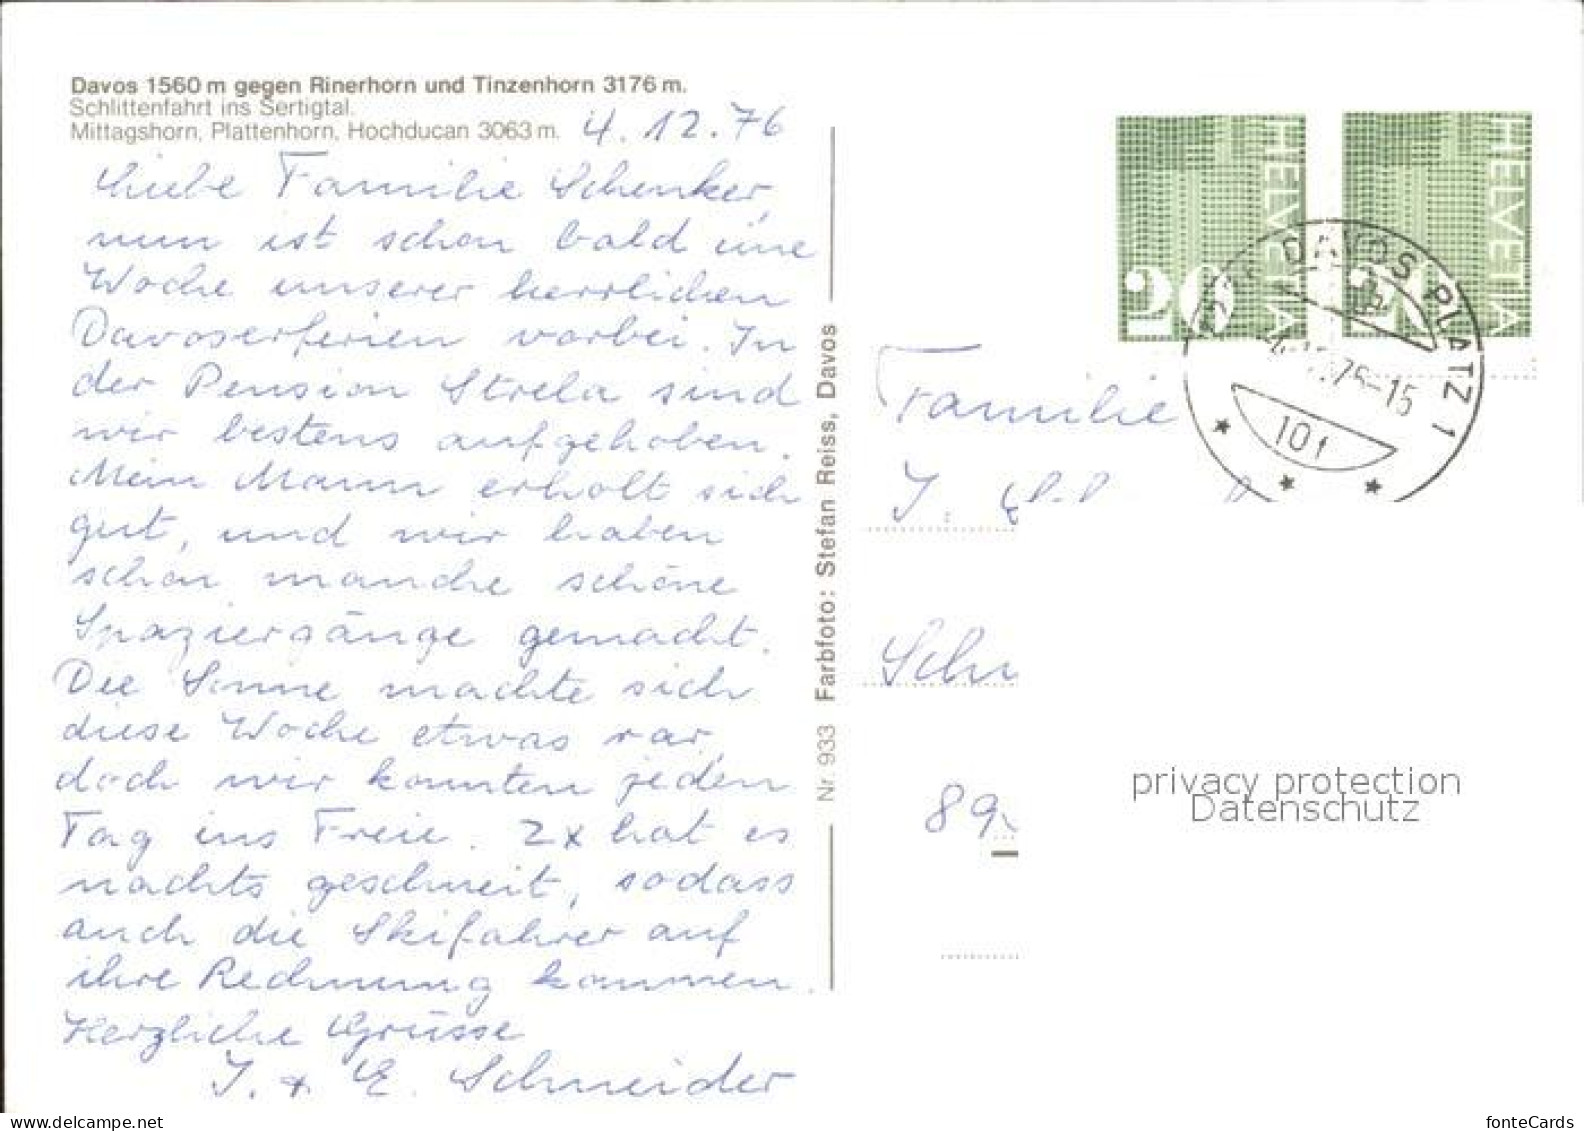 Davos 1560 m gegen Rinerhorn und Tinzenhorn 3176 m.
Schlittenfahrt ins Sertigtal.
Mittagshorn, Plattenhorn, Hochducan 3063 m.
4.12.76
Liebe Familie Schenker,
nun ist schon bald eine
Woche unserer herrlichen
Davoserferien vorbei. In
der Pension Strela sind
wir bestens aufgehoben.
Mein Mann erholt sich
gut, und wir haben
schon manche schöne
Spaziergänge gemacht.
Die Sonne machte sich
diese Woche etwas rar,
doch wir konnten jeden
Tag ins Freie. 2x hat es
nachts geschneit, sodass
auch die Skifahrer auf
ihre Rechnung kommen.
Herzliche Grüsse
J. + E. Schneider
Nr. 933 Farbfoto: Stefan Reiss, Davos
HELVETIA
20
HELVETIA
DAVOS PLATZ 1
75-15
101
Familie
J.
Sch
89
privacy protection
Datenschutz
delcampe.net
fonteCards